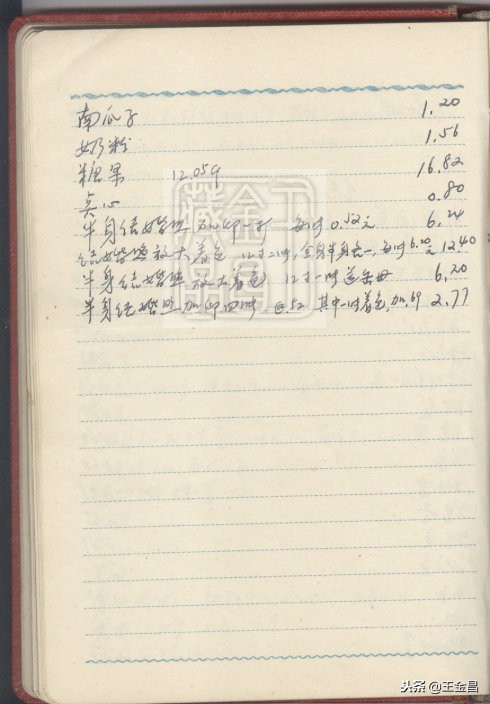 南瓜子 1.20
奶粉 1.56
糖果 12.05斤 16.82
点心 0.80
半身结婚照 加印一打 每张0.52元 6.24
结婚照放大着色 12寸二张,全身半身各一,每张6.20元 12.40
半身结婚照放大着色 12寸一张送岳母 6.20
半身结婚照加印四张 @.52 其中一张着色,加.69 2.77
王金昌藏
头条@王金昌